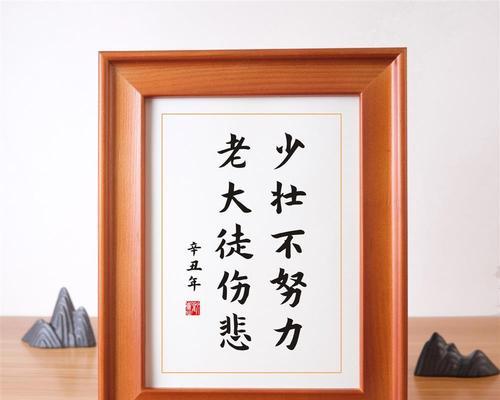 少壮不努力
老大徒伤悲
辛丑年